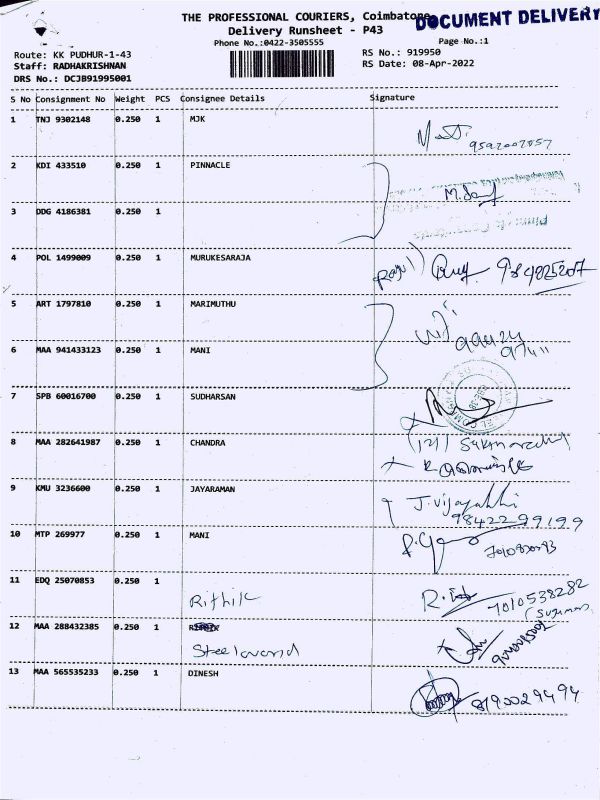 THE PROFESSIONAL COURIERS, Coimbatore
DOCUMENT DELIVERY
Delivery Runsheet - P43
Phone No.:0422-3505555
Page No.:1
Route: KK PUDHUR-1-43
RS No.: 919950
Staff: RADHAKRISHNAN
RS Date: 08-Apr-2022
DRS No.: DCJB91995001
S No Consignment No Weight PCS Consignee Details Signature
1 TNJ 9302148 0.250 1 MJK
9592002057
2 KDI 433510 0.250 1 PINNACLE
3 DDG 4186381 0.250 1
4 POL 1499009 0.250 1 MURUKESARAJA
5 ART 1797810 0.250 1 MARIMUTHU
6 MAA 941433123 0.250 1 MANI
7 SPB 60016700 0.250 1 SUDHARSAN
8 MAA 282641987 0.250 1 CHANDRA
9 KMU 3236600 0.250 1 JAYARAMAN
9842299199
10 MTP 269977 0.250 1 MANI
11 EDQ 25070853 0.250 1
Rithik
7010538282
12 MAA 288432385 0.250 1
13 MAA 565535233 0.250 1 DINESH
8190029494